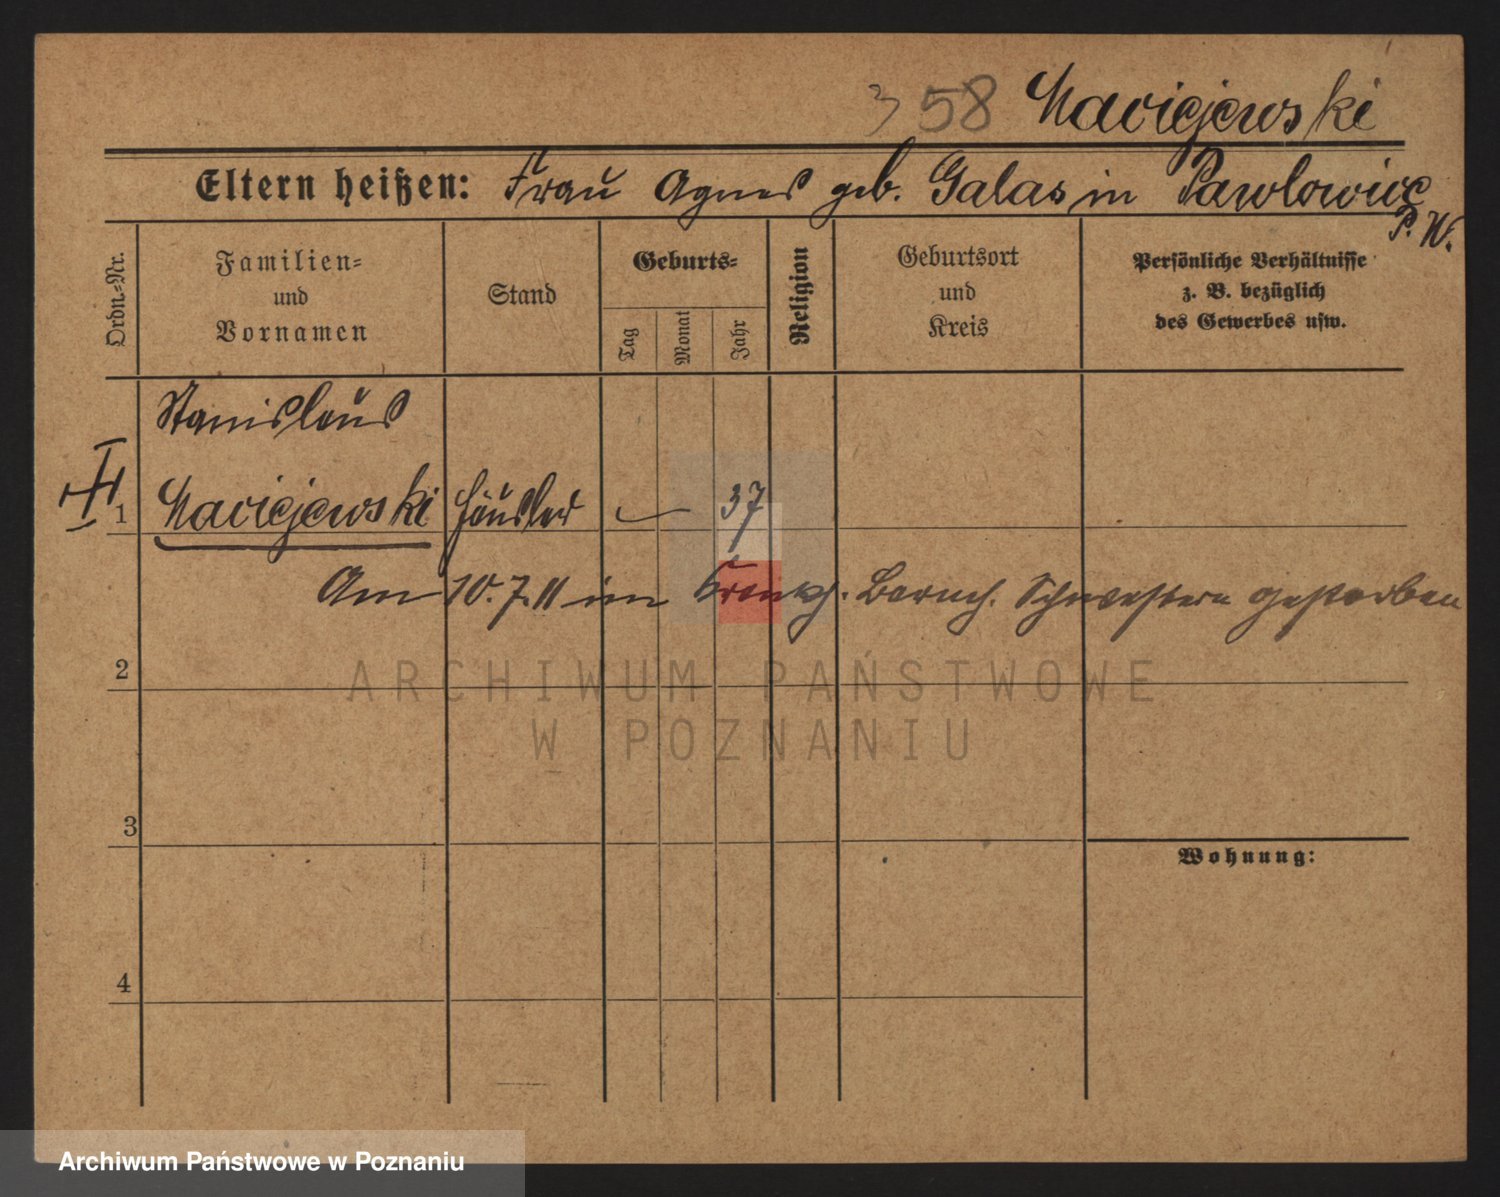 358 Maciejewski
Eltern heißen: Frau Agnes geb. Galas in Pawlowice
P. W.
Ordn.-Nr.
Familien-
und
Vornamen
Stand
Geburts-
Tag
Monat
Jahr
Religion
Geburtsort
und
Kreis
Persönliche Verhältnisse
z. B. bezüglich
des Gewerbes usw.
Stanislaus
1 Maciejewski Häusler 37
Am 10.7.11 im Krankh. Barmh. Schwestern gestorben
2
3
4
Wohnung:
ARCHIWUM PAŃSTWOWE
W POZNANIU
Archiwum Państwowe w Poznaniu